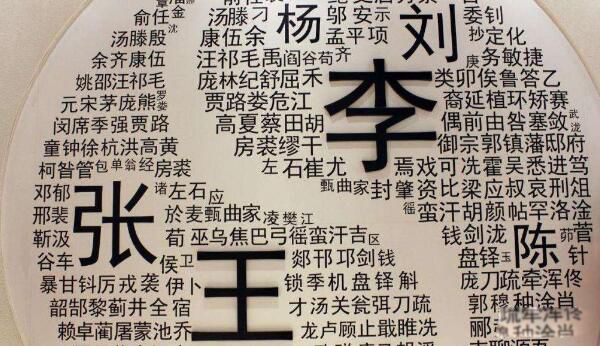 俞任金 刁 杨 邬安示 刘 委钊
汤滕殷 沈 康伍余 孟平项 抄定化
余齐康伍 汪祁毛禹 阎谷茹 齐 庚 务敏捷
姚邵汪祁毛 庞林纪舒屈禾 李 类卯俟鲁答乙
元宋茅庞熊 罗娄 贾路娄危江 裔延植环矫赛
闵席季强贾路 高夏蔡田胡 偶前由昝塞敛 武
童钟徐杭洪高黄 房裘缪干 御宗郭镇藩邸府
柯昝管 包单翁经 房裘 左石崔尤 焉戏可冼霍吴悉进笃
邓郁 张 诸 左石 应 甄曲家 封肇资比梁应叔哀刑俎
邢裴 於麦甄曲家 凌樊江 徭蛮汗胡颜帖罕洛淦
靳汲 荀 巫乌焦巴弓徭蛮汗吉 区 钱剑泷 陈 菅
谷车 侯 卫 王 郯邗邛剑钱 盘铎 玉 针
暴甘钭厉戎袭 伊卜 锁季机盘铎斛 庞刀疏牵浑佟
韶郜黎蓟井全宿 才汤关瓮弭刀疏 郭穆种涂肖
赖卓蔺屠蒙池乔 龙卢顾止戢睢冼 郦